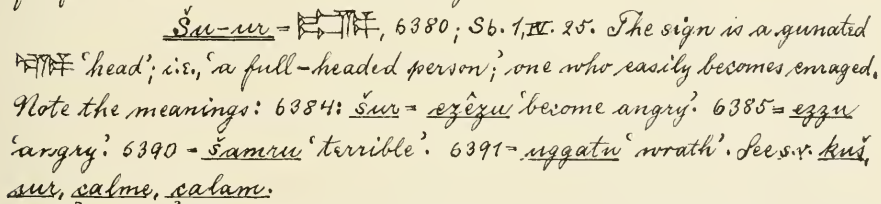 Šu-ur = , 6380; Sb. 1, IV. 25. The sign is a gunated
'head'; i.e., 'a full-headed person,' one who easily becomes enraged.
Note the meanings: 6384: šur = ezêzu 'become angry.' 6385 = ezzu
'angry.' 6390 = šamru 'terrible'. 6391 = uggatu 'wrath'. See s.v. kuš,
sur, calme, calam.